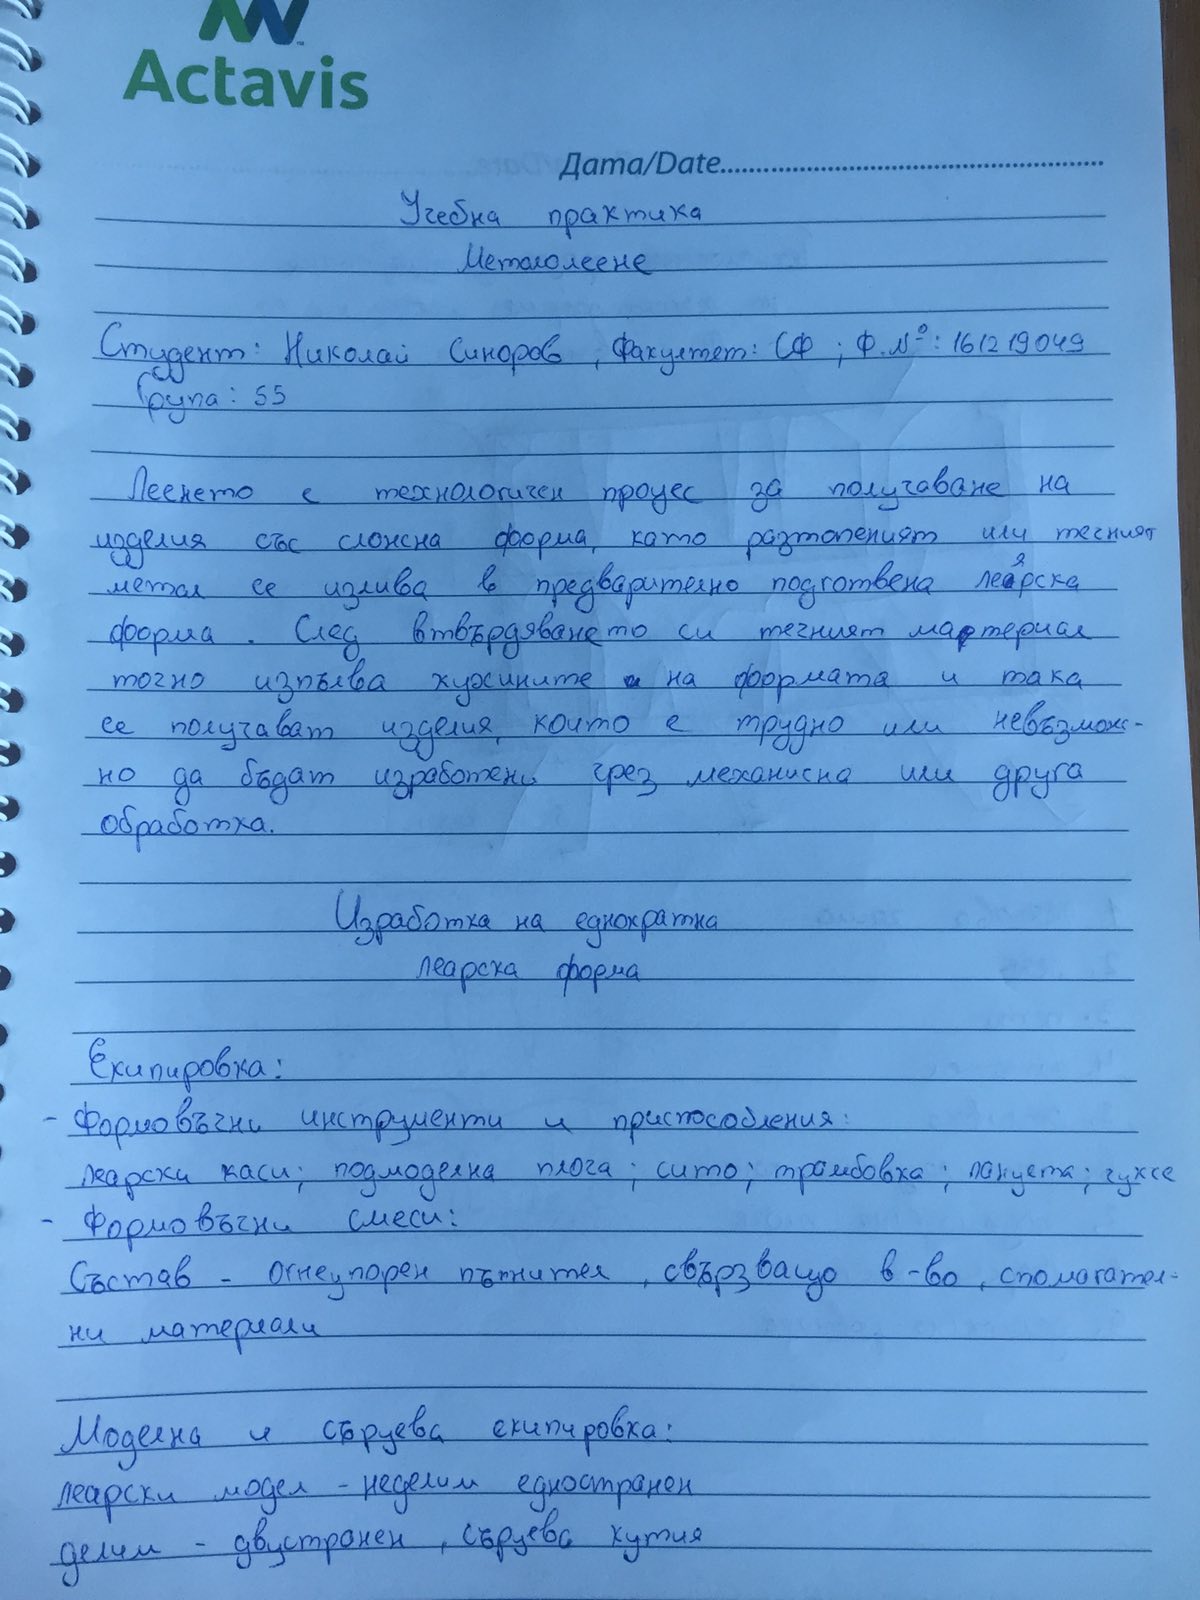 Actavis
Дата/Date
Учебна практика
Металолеене
Студент: Николай Синоров, Факултет: СФ; Ф.№: 161219049
Група: 55
Леенето е технологичен процес за получаване на
изделия със сложна форма, като разтопеният или течният
метал се излива в предварително подготвена леярска
форма. След втвърдяването си течният материал
точно изпълва кухините на формата и така
се получават изделия, които е трудно или невъзмож-
но да бъдат изработени чрез механисна или друга
обработка.
Изработка на еднократна
леарска форма
Екипировка:
- Формовъчни инструменти и приспособления:
леарски каси; подмоделна плоча; сито; трамбовка; ланцета;
- Формовъчни смеси:
Състав - огнеупорен пълнител, свързващо в-во, спомагател-
ни материали
Моделна и сърцева екипировка:
леарски модел - неделим едностранен
делим - двустранен, сърцева кутия